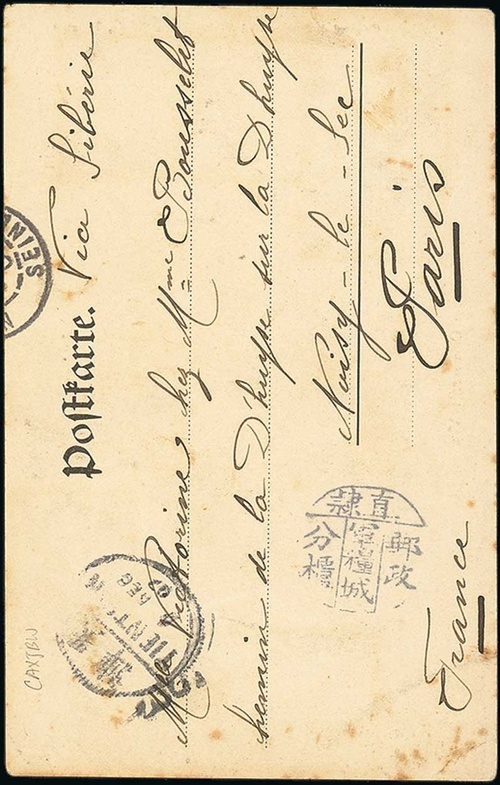 Postkarte.
Via Sibérie
Victorine chez Mme Bousselet
chemin de la Dhuys sur la Dhuys
Noisy-le-Sec
Paris
France
直隸
郵政
軍糧城
分櫃
TIENTSIN
DEC
CAXTBW